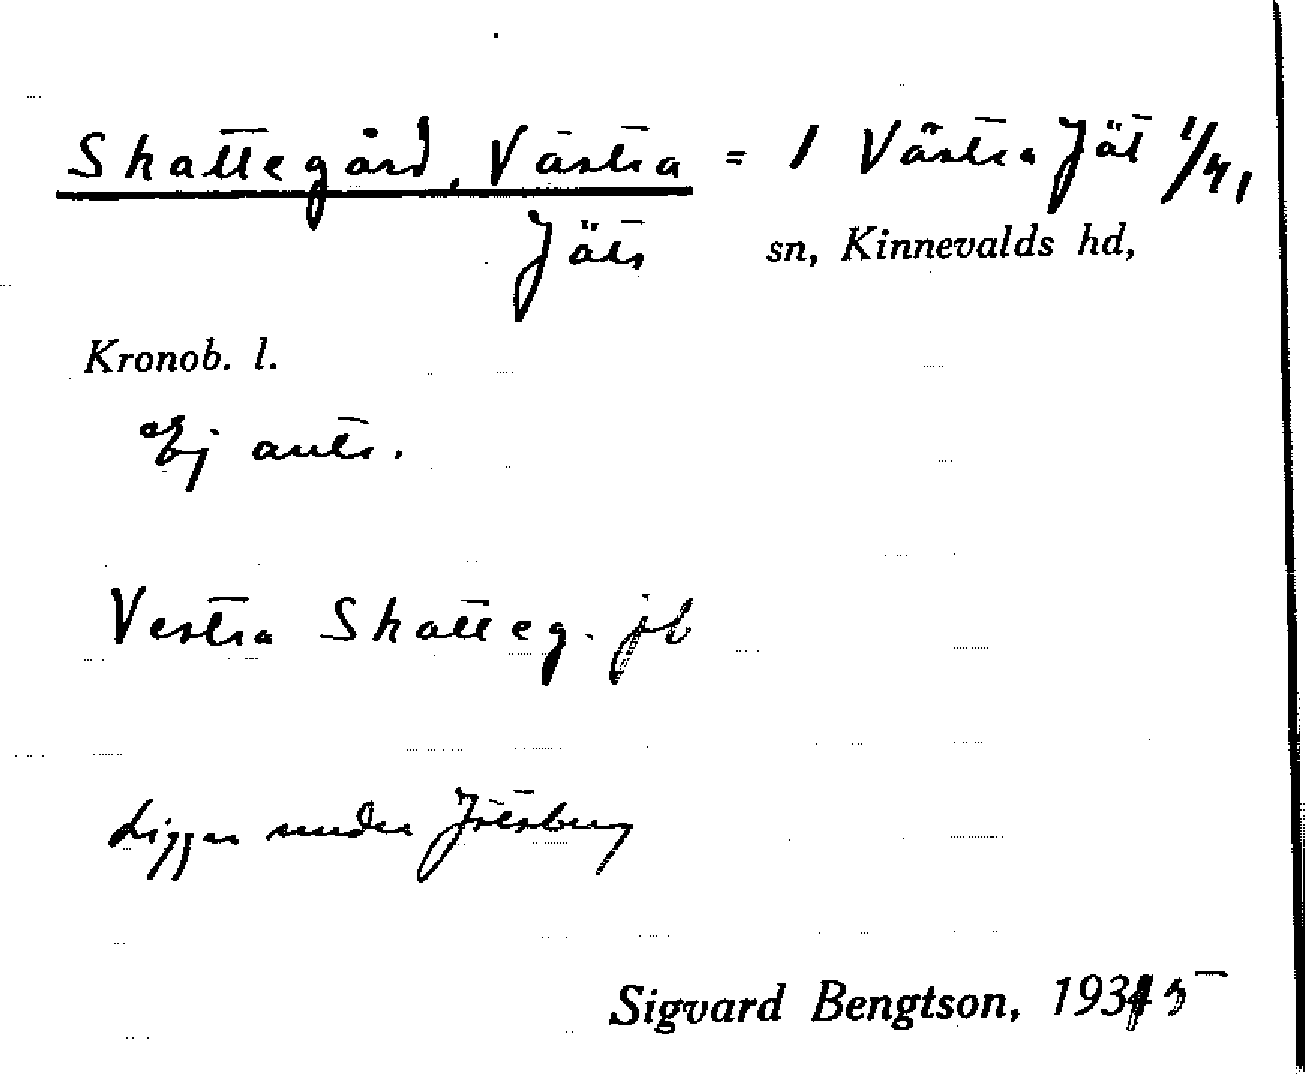 Skattegård, Västra = 1 Västra Jät 1/4,
Jäts sn, Kinnevalds hd,
Kronob. l.
Ej ants.
Vestra Skatteg. jb
Ligger under Jätsberg
Sigvard Bengtson, 1935